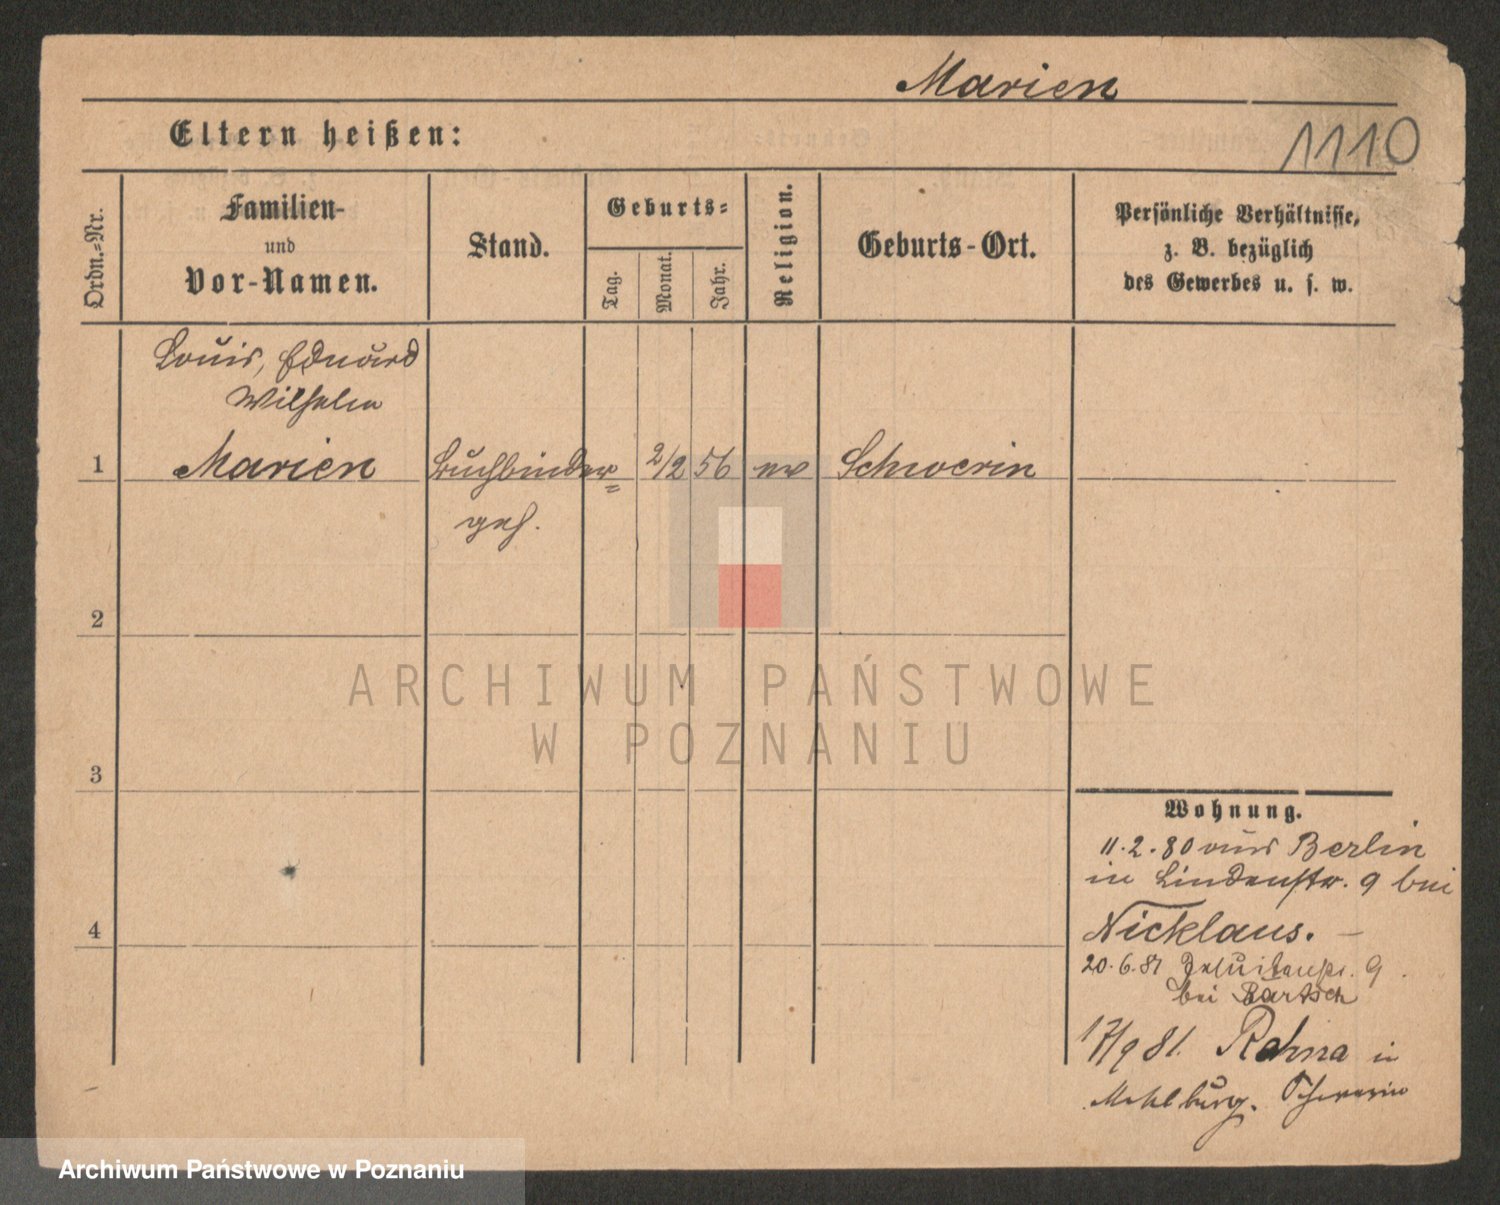 Marien
Eltern heißen:
1110
Ordn.-Nr.
Familien-
und
Vor-Namen.
Stand.
Geburts-
Tag.
Monat.
Jahr.
Religion.
Geburts-Ort.
Persönliche Verhältnisse,
z. B. bezüglich
des Gewerbes u. s. w.
Louis, Eduard
Wilhelm
1 Marien Buchbinder= 2/2 56 ev Schwerin
geh.
2
3
4
ARCHIWUM PAŃSTWOWE
W POZNANIU
Wohnung.
11.2.80 aus Berlin
in Lindenstr. 9 bei
Nicklaus. —
20.6.81 Jesuitenstr. 9.
bei Bartsch
17/9 81. Rehna in
Meklburg. Schwerin
Archiwum Państwowe w Poznaniu